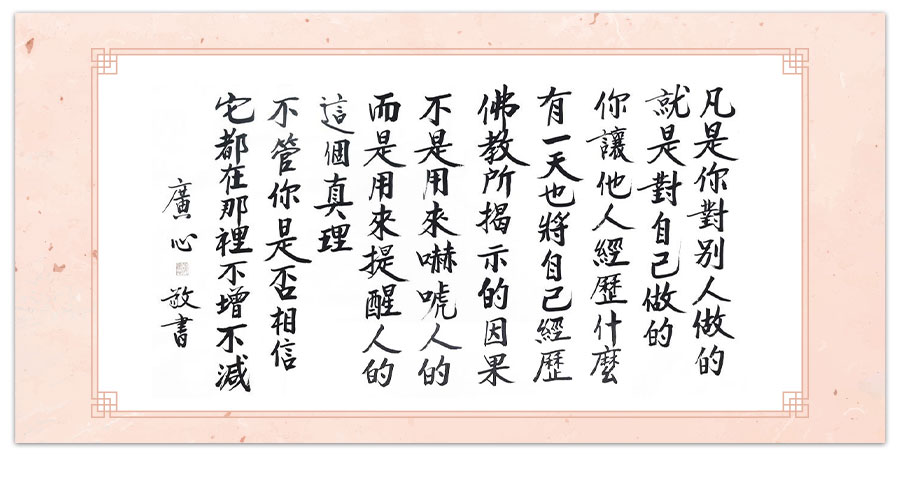 凡是你對别人做的
就是對自己做的
你讓他人經歷什麼
有一天也將自己經歷
佛教所揭示的因果
不是用來嚇唬人的
而是用來提醒人的
這個真理
不管你是否相信
它都在那裡不增不減
廣心
敬書